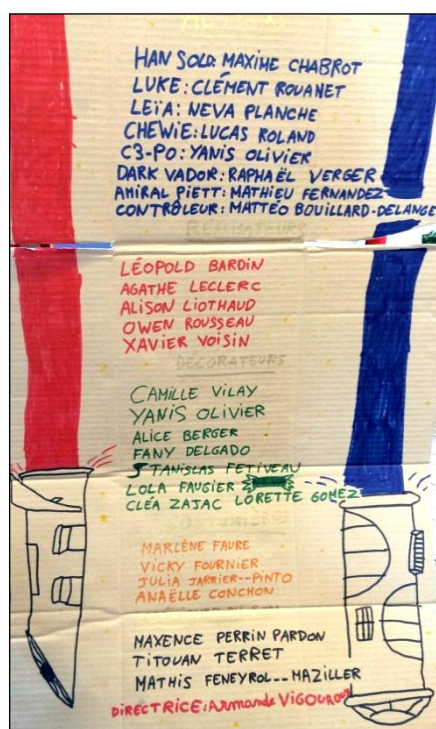 HAN SOLO: MAXIME CHABROT
LUKE: CLÉMENT ROUANET
LEÏA: NEVA PLANCHE
CHEWIE: LUCAS ROLAND
C3-PO: YANIS OLIVIER
DARK VADOR: RAPHAËL VERGER
AMIRAL PIETT: MATHIEU FERNANDEZ
CONTRÔLEUR: MATTÉO BOUILLARD-DELANGE
RÉALISATEURS
LÉOPOLD BARDIN
AGATHE LECLERC
ALISON LIOTHAUD
OWEN ROUSSEAU
XAVIER VOISIN
DÉCORATEURS
CAMILLE VILAY
YANIS OLIVIER
ALICE BERGER
FANY DELGADO
STANISLAS FETIVEAU
LOLA FAUGIER
CLÉA ZAJAC LORETTE GOMEZ
MARLÈNE FAURE
VICKY FOURNIER
JULIA JARRIER--PINTO
ANAËLLE CONCHON
MAXENCE PERRIN PARDON
TITOUAN TERRET
MATHIS FENEYROL--MAZILLER
DIRECTRICE: Armande VIGOUROUX